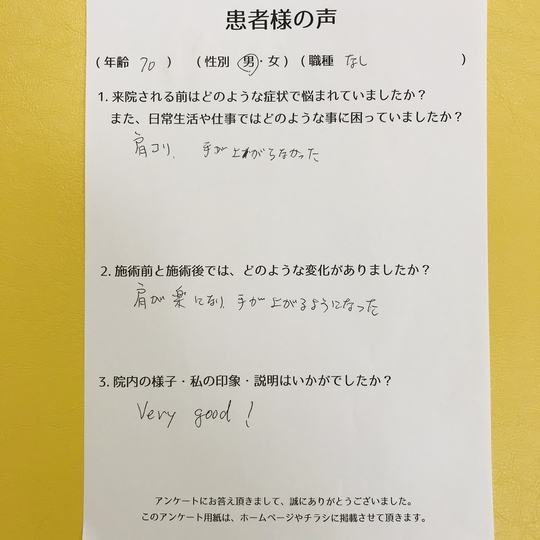 患者様の声
(年齢 70 ) (性別 男・女) (職種 なし )
1. 来院される前はどのような症状で悩まれていましたか？
また、日常生活や仕事ではどのような事に困っていましたか？
肩コリ、 手が上がらなかった
2. 施術前と施術後では、どのような変化がありましたか？
肩が楽になり、手が上がるようになった
3. 院内の様子・私の印象・説明はいかがでしたか？
Very good!
アンケートにお答え頂きまして、誠にありがとうございました。
このアンケート用紙は、ホームページやチラシに掲載させて頂きます。